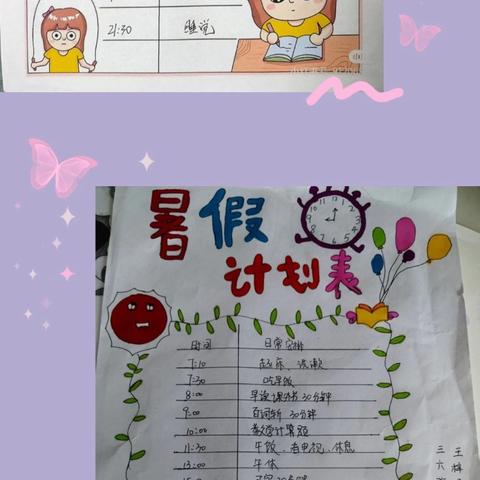 21:30 睡觉
暑假
计划表
时间 日常安排
7:10 起床、洗漱
7:30 吃早饭
8:00 早读课外书30分钟
9:00 百词斩 30分钟
10:00 数学计算题
11:30 午饭、看电视、休息
13:00 午休
三六班